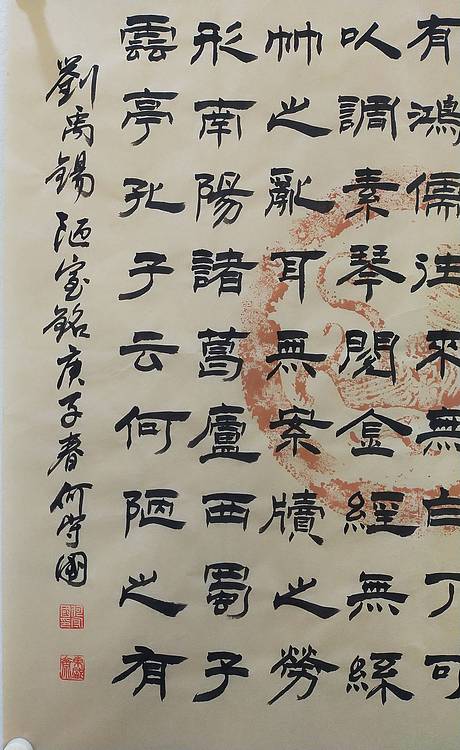 有鴻儒往來無白丁可
以調素琴閱金經無絲
竹之亂耳無案牘之勞
形南陽諸葛廬西蜀子
雲亭孔子云何陋之有
劉禹錫陋室銘庚子春何守國